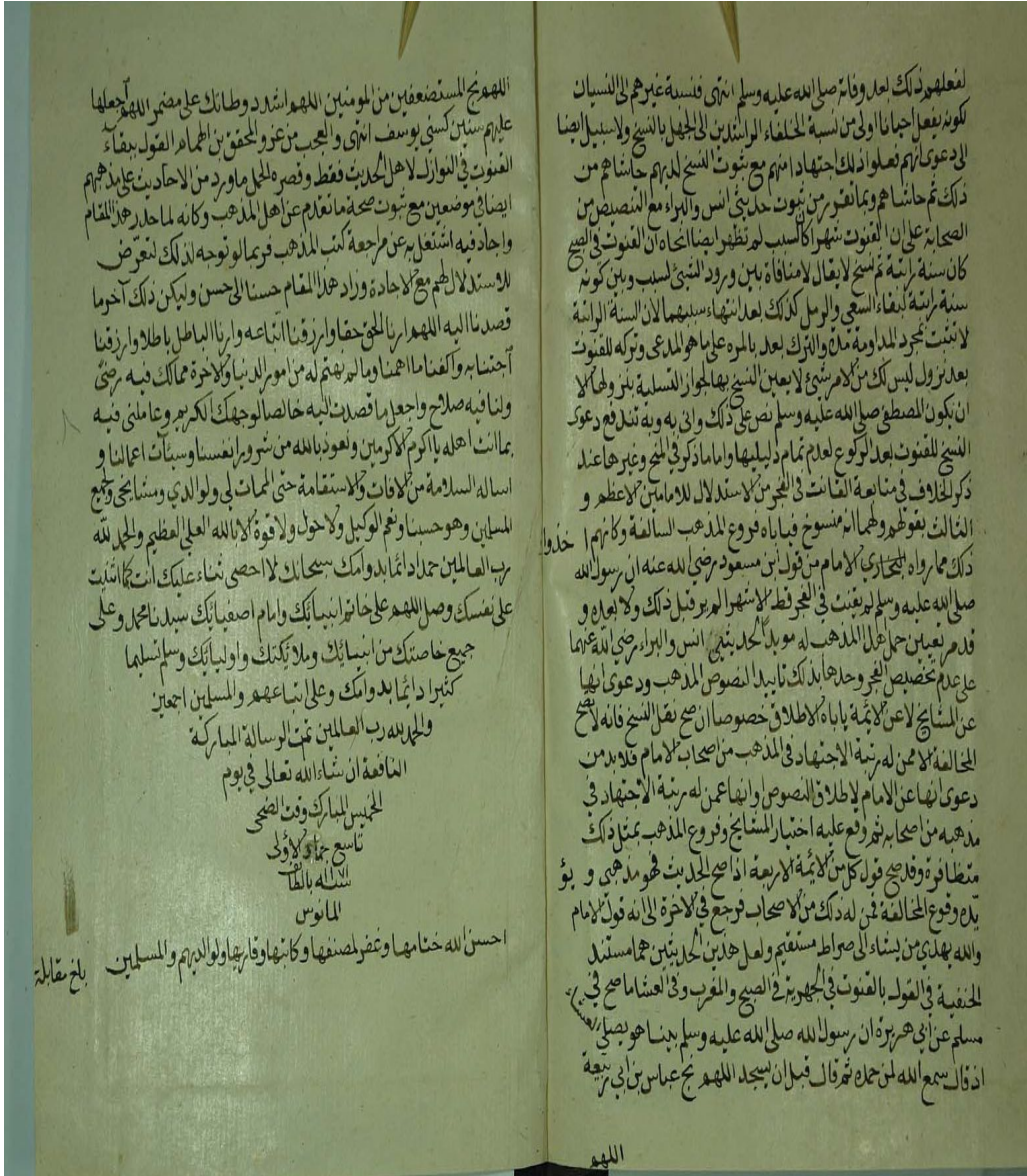 لفعلهم ذلك بعد وفاته صلى الله عليه وسلم انتهى فنسبة غيرهم الى النسيان
لكونه يفعل احيانا اولى من نسبة الخلفاء الراشدين الى الجهل بالنسخ ولا سبيل ايضا
الى دعوى انهم فعلوا ذلك اجتهادا منهم مع ثبوت النسخ لديهم حاشاهم من
ذلك ثم حاشاهم وبما تقرر من ثبوت حديثي انس والبراء مع التنصيص من
الصحابة على ان القنوت شهرا كان لسبب لم تظهر ايضا اتجاه ان القنوت في الصبح
كان سنة راتبة ثم نسخ لا يقال لا منافاة بين ورود الشيئ لسبب وبين كونه
سنة راتبة لبقاء السعي والرمل كذلك بعد انتهاء سببهما لان السنة الراتبة
لا تثبت بمجرد المداومة مدة والترك بعد بالمره على ما هو المدعى وتركه للقنوت
بعد نزول ليس لك من الامر شيئ لا يعين النسخ بها لجواز التسلية بنزولها الا
ان يكون المصطفى صلى الله عليه وسلم نص على ذلك وانى به وبه تندفع دعوى
النسخ للقنوت بعد الركوع لعدم تمام دليلها واما ما ذكر في المنح وغيرها عند
ذكر الخلاف في متابعة القانت في الفجر من الاستدلال للامامين الاعظم و
الثالث بقولهم ولهما انه منسوخ فيأباه فروع المذهب السالفة وكانهم اخذوا
ذلك مما رواه البخاري الامام من قول ابن مسعود رضي الله عنه ان رسول الله
صلى الله عليه وسلم لم يقنت في الفجر قط الا شهرا لم ير قبل ذلك ولا بعده و
قد مر يعين حمل هذا المذهب له مويدا لحديثي انس والبراء رضي الله عنهما
على عدم تخصيص الفجر وحدها بذلك تاييدا لنصوص المذهب ودعوى انها
عن المشايخ لا عن الائمة ياباه الاطلاق خصوصا ان صح نقل النسخ فانه لا تصح
المخالفة الا ممن له رتبة الاجتهاد في المذهب من اصحاب الامام فلا بد من
دعوى انها عن الامام لاطلاق النصوص او انها عمن له رتبة الاجتهاد في
مذهبه من اصحابه ثم وقع عليه اختيار المشايخ وفروع المذهب بمثل ذلك
متظافرة وقد صح قول كل من الائمة الاربعة اذا صح الحديث فهو مذهبي و يؤ
يده وقوع المخالفة فمن له ذلك من الاصحاب فرجع في الاخرة الى انه قول الامام
والله يهدي من يشاء الى صراط مستقيم ولعل هذين الحديثين هما مستند
الحنفية في القول بالقنوت في الجهرية في الصبح والمغرب وفي العشا ما صح في
مسلم عن ابي هريرة ان رسول الله صلى الله عليه وسلم بينا هو يصلي العشاء
اذ قال سمع الله لمن حمده ثم قال قبل ان يسجد اللهم نج عياش بن ابي ربيعة
اللهم
اللهم نج المستضعفين من المومنين اللهم اشدد وطاتك على مضر اللهم اجعلها
عليهم سنين كسني يوسف انتهى والعجب من عزو المحقق بن الهمام القول ببقاء
القنوت في النوازل لاهل الحديث فقط وقصره الحمل ما ورد من الاحاديث على مذهبهم
ايضا في موضعين مع ثبوت صحة ما تقدم عن اهل المذهب وكانه لما حرر هذا المقام
واجاد فيه اشتغل به عن مراجعة كتب المذهب فربما لو توجه لذلك لتعرض
للاستدلال لهم مع الاجادة وزاد هذا المقام حسنا الى حسن وليكن ذلك آخر ما
قصدنا اليه اللهم ارنا الحق حقا وارزقنا اتباعه وارنا الباطل باطلا وارزقنا
اجتنابه واكفنا ما اهمنا وما لم نهتم له من امور الدنيا والاخرة مما لك فيه رضى
ولنا فيه صلاح واجعل ما قصدت اليه خالصا لوجهك الكريم وعاملني فيه
بما انت اهله يا اكرم الاكرمين ونعوذ بالله من شرور انفسنا وسيئات اعمالنا و
اساله السلامة من الافات والاستقامة حتى الممات لي ولوالدي ومشايخي وجميع
المسلمين وهو حسبنا ونعم الوكيل ولا حول ولا قوة الا بالله العلي العظيم والحمد لله
رب العالمين حمدا دائما بدوامك سبحانك لا احصي ثناء عليك انت كما اثنيت
على نفسك وصل اللهم على خاتم انبيائك وامام اصفيائك سيدنا محمد وعلى
جميع خاصتك من انبيائك وملائكتك واوليائك وسلم تسليما
كثيرا دائما بدوامك وعلى اتباعهم والمسلمين اجمعين
والحمد لله رب العالمين تمت الرسالة المباركة
النافعة ان شاء الله تعالى في يوم
الخميس المبارك وقت الضحى
تاسع جماد الاولى
بالطائف
المانوس
احسن الله ختامها وغفر لمصنفها وكاتبها وقاريها ولوالديهم والمسلمين
بلغ مقابلة